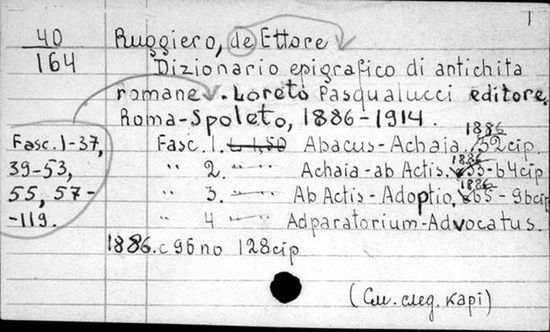 1
40
164
Ruggiero, de Ettore
Dizionario epigrafico di antichita
romane. Loreto Pasqualucci editore.
Roma-Spoleto, 1886-1914.
Fasc. 1-37,
39-53,
55, 57-
-119.
Fasc. 1. L 1,50 Abacus-Achaia. 1886 32cip.
" 2. " Achaia-ab Actis. 1886 c33-64cip
" 3. " Ab Actis-Adoptio. 1886 c65-96cip
" 4 " Adparatorium-Advocatus.
1886. c 96 no 128cip
(См. след. карі)